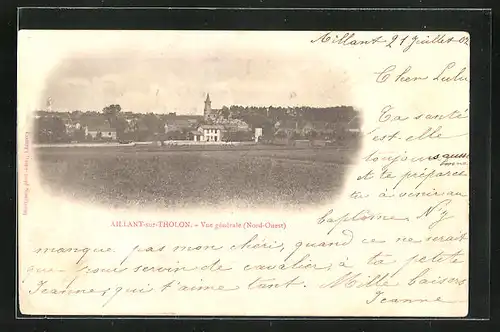 Aillant 21 Juillet 02
Cher Lulu
Ta santé
est-elle
toujours aussi
bonne
et te prépare
tu à venir au
baptême. N'y
AILLANT-sur-THOLON. - Vue générale (Nord-Ouest)
manque pas mon chéri, quand ce ne serait
que pour servir de cavalier, à ta petite
Jeanne, qui t'aime tant. Mille baisers
Jeanne